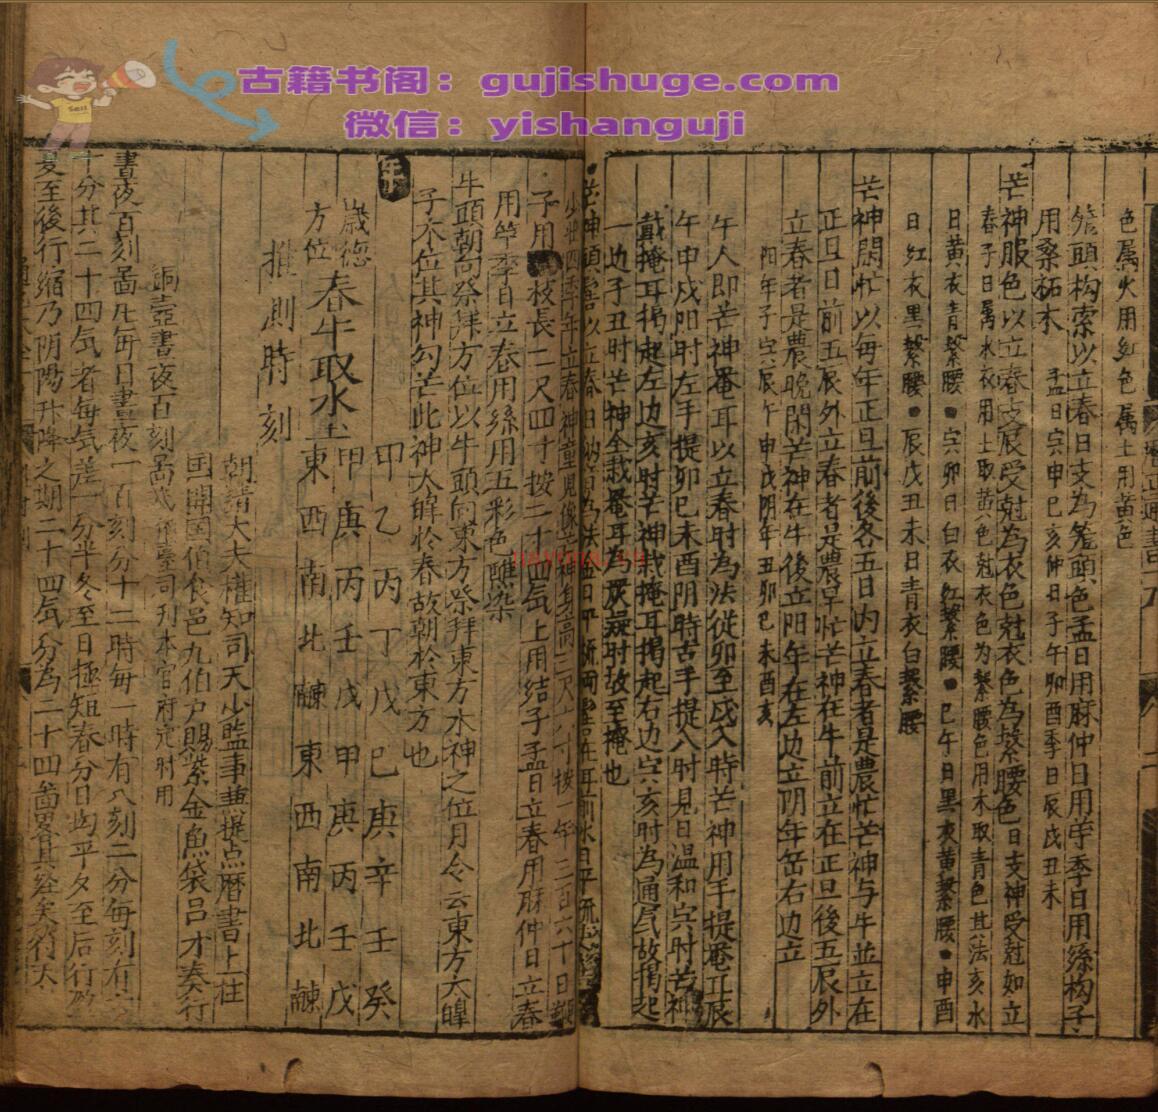 古籍书阁：gujishuge.com
微信：yishanguji
Sell
色属火用紅色属土用黄色
籠頭构索以立春日支為籠頭色孟日用麻仲日用苧季日用絲构子
用桑柘木
孟日寅申巳亥仲日子午卯酉季日辰戌丑未
芒神服色以立春支辰受尅為衣色尅衣色為繋腰色日支神受尅如立
春子日属水衣用土取黄色尅衣色为繋腰色用木取青色其法亥水
日黄衣青繋腰寅卯日白衣紅繋腰巳午日黒衣黄繋腰申酉
日紅衣黒繋腰辰戌丑未日青衣白繋腰
芒神閑忙以每年正旦前後各五日内立春者是農忙芒神与牛並立在
正旦日前五辰外立春者是農早忙芒神在牛前立在正旦後五辰外
立春者是農晚閑芒神在牛後立阳年在左边立阴年在右边立
阳年子寅辰午申戌阴年丑卯巳未酉亥
午人即芒神罨耳以立春时為法從卯至戌八時芒神用手提罨耳辰
午申戌阳时左手提卯巳未酉阴時右手提八时見日温和寅时芒神
戴掩耳揭起左边亥时芒神戴掩耳揭起右边寅亥时為通氣故揭起
一边子丑时芒神全戴罨耳為嚴凝时故至掩也
子用 枝長二尺四寸按二十四氣上用結子孟日立春用麻仲日立春
用苧季日立春用絲用五彩色醮染
牛頭朝向祭拜方位以牛頭向東方祭拜東方水神之位月令云東方大皥
子木位其神勾芒此神大皥於春故朝於東方也
年
歳德
方位
春牛取水土
甲乙丙丁戊己庚辛壬癸
甲庚丙壬戊甲庚丙壬戊
東西南北
東西南北
推測時刻
朝請大夫權知司天少監事兼提点暦書上柱
国開国伯食邑九伯户賜紫金魚袋吕才奏行
銅壺晝夜百刻
司刊本官府定时用
晝夜百刻啚凡每日晝夜一百刻分十二時每一時有八刻二分每刻有六
十分其二十四氣者每氣差一分半冬至日極短春分日均平夕至后行
夏至後行縮乃阴陽升降之期二十四氣分為二十四